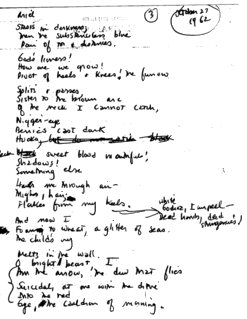 Ariel
③
October 27
1962
Stasis in darkness,
Then the substanceless blue
Pour of tor & distances.
God's lioness!
How one we grow!
Pivot of heels & knees! The furrow
Splits & passes
Sister to the brown arc
Of the neck I cannot catch,
Nigger-eye
Berries cast dark
Hooks,
sweet blood mouthfuls!
Shadows!
Something else
Hauls me through air—
Thighs, hair;
Flakes from my heels.
White
Godiva, I unpeel—
Dead hands, dead stringencies!
And now I
Foam to wheat, a glitter of seas.
The child's cry
Melts in the wall.
O bright beast, I
Am the arrow, the dew that flies
Suicidal, at one with the drive
Into the red
Eye, the cauldron of morning.